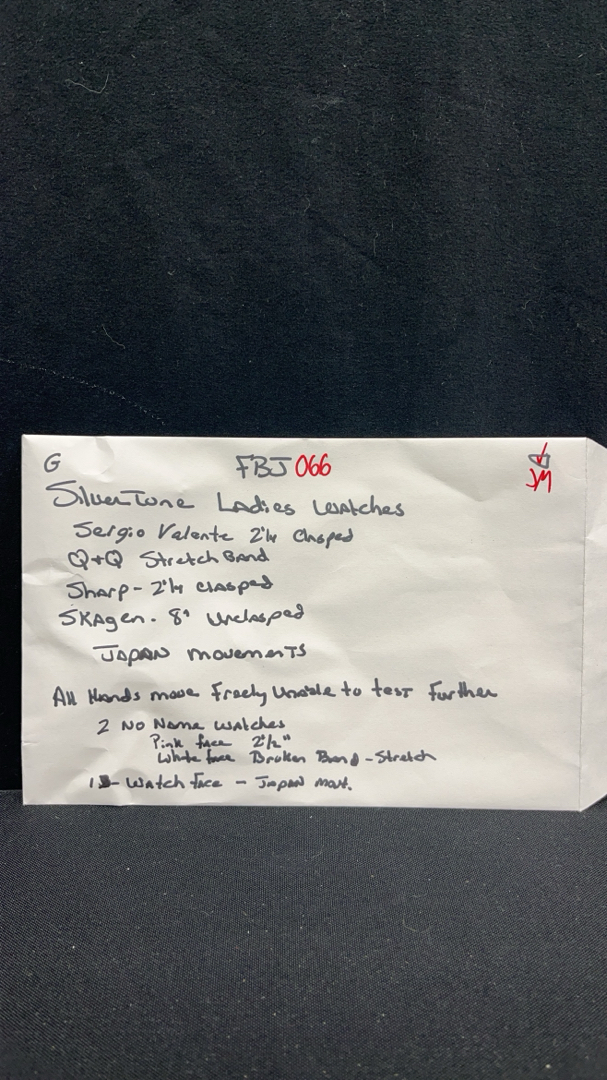 G FBJ 066
JM
SilverTone Ladies Watches
Sergio Valente 2¼ Clasped
Q+Q Stretch Band
Sharp - 2¼ clasped
SKAgen - 8" unclasped
JAPAN movements
All Hands move Freely Unable to test Further
2 No Name watches
Pink face 2½"
White face Broken Band - Stretch
1 - Watch Face - Japan mov't.